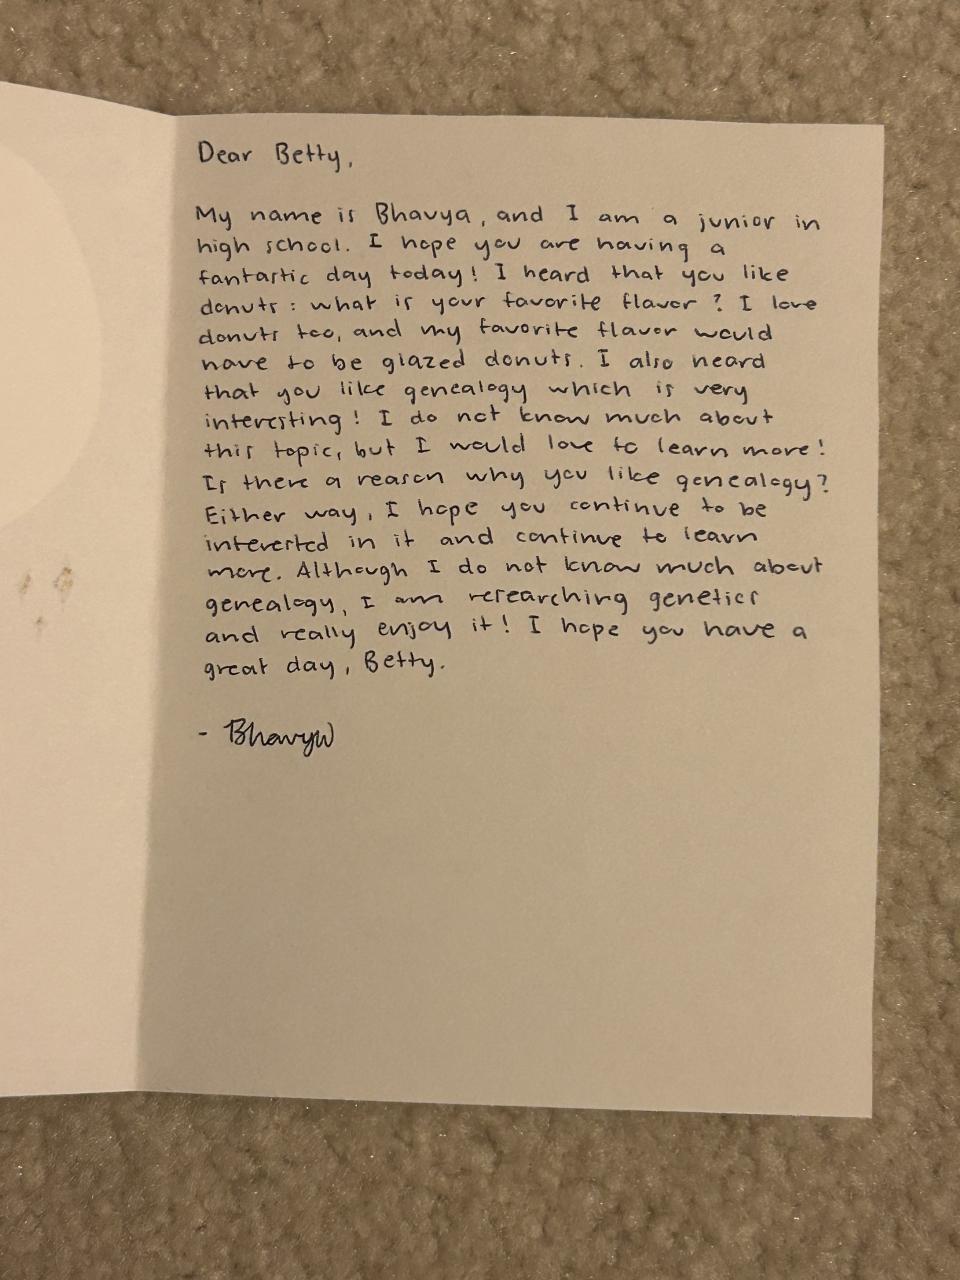 Dear Betty,
My name is Bhavya, and I am a junior in
high school. I hope you are having a
fantastic day today! I heard that you like
donuts: what is your favorite flavor? I love
donuts too, and my favorite flavor would
have to be glazed donuts. I also heard
that you like genealogy which is very
interesting! I do not know much about
this topic, but I would love to learn more!
Is there a reason why you like genealogy?
Either way, I hope you continue to be
interested in it and continue to learn
more. Although I do not know much about
genealogy, I am researching genetics
and really enjoy it! I hope you have a
great day, Betty.
- Bhavya